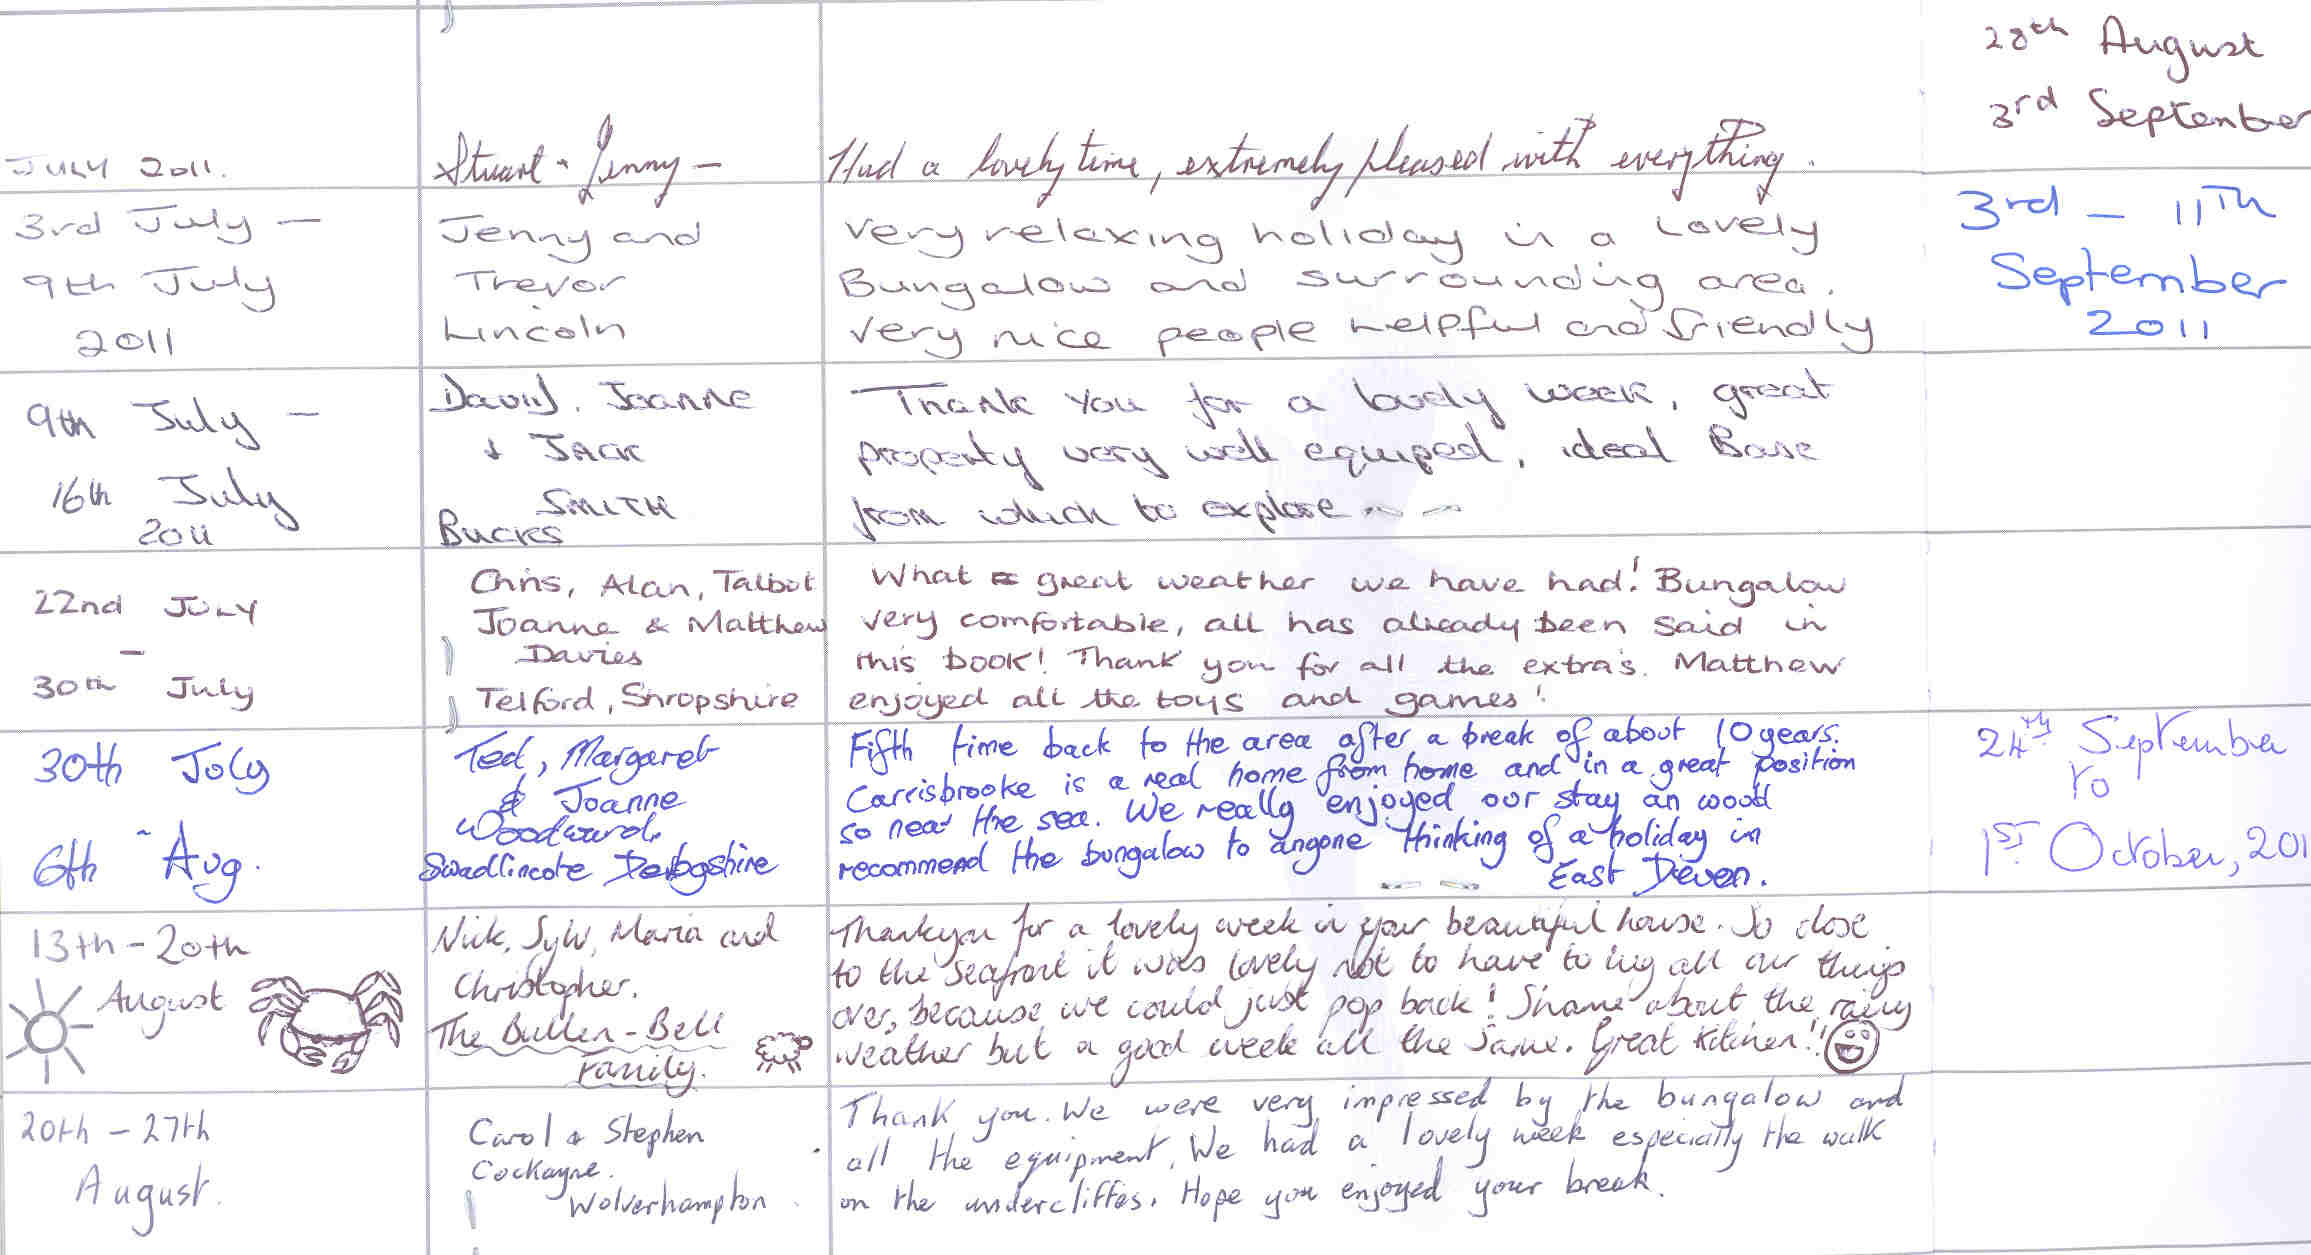 JULY 2011.
Stuart & Jenny -
Had a lovely time, extremely pleased with everything.
3rd July -
9th July
2011
Jenny and
Trevor
Lincoln
Very relaxing holiday in a Lovely
Bungalow and surrounding area.
Very nice people helpful and friendly
9th July -
16th July
2011
David, Joanne
& JACK
SMITH
BUCKS
Thank you for a lovely week, great
property very well equiped, ideal Base
from which to explore
22nd JULY
-
30th July
Chris, Alan, Talbot
Joanne & Matthew
Davies
Telford, Shropshire
What great weather we have had! Bungalow
very comfortable, all has already been said in
this book! Thank you for all the extra's. Matthew
enjoyed all the toys and games!
30th July
-
6th Aug.
Ted, Margaret
& Joanne
Woodward.
Swadlincote Derbyshire
Fifth time back to the area after a break of about 10 years.
Carrisbrooke is a real home from home and in a great position
so near the sea. We really enjoyed our stay an would
recommend the bungalow to anyone thinking of a holiday in
East Deven.
13th - 20th
August
Nick, Sylv, Maria and
Christopher.
The Bullen-Bell
Family.
Thankyou for a lovely week in your beautiful house. So close
to the seafront it was lovely not to have to lug all our things
over, because we could just pop back! Shame about the rainy
weather but a good week all the same. Great Kitchen!!
20th - 27th
August.
Carol & Stephen
Cockayne.
Wolverhampton
Thank you. We were very impressed by the bungalow and
all the equipment. We had a lovely week especially the walk
on the undercliffes. Hope you enjoyed your break.
28th August
3rd September
3rd - 11th
September
2011
24th September
to
1st October, 201